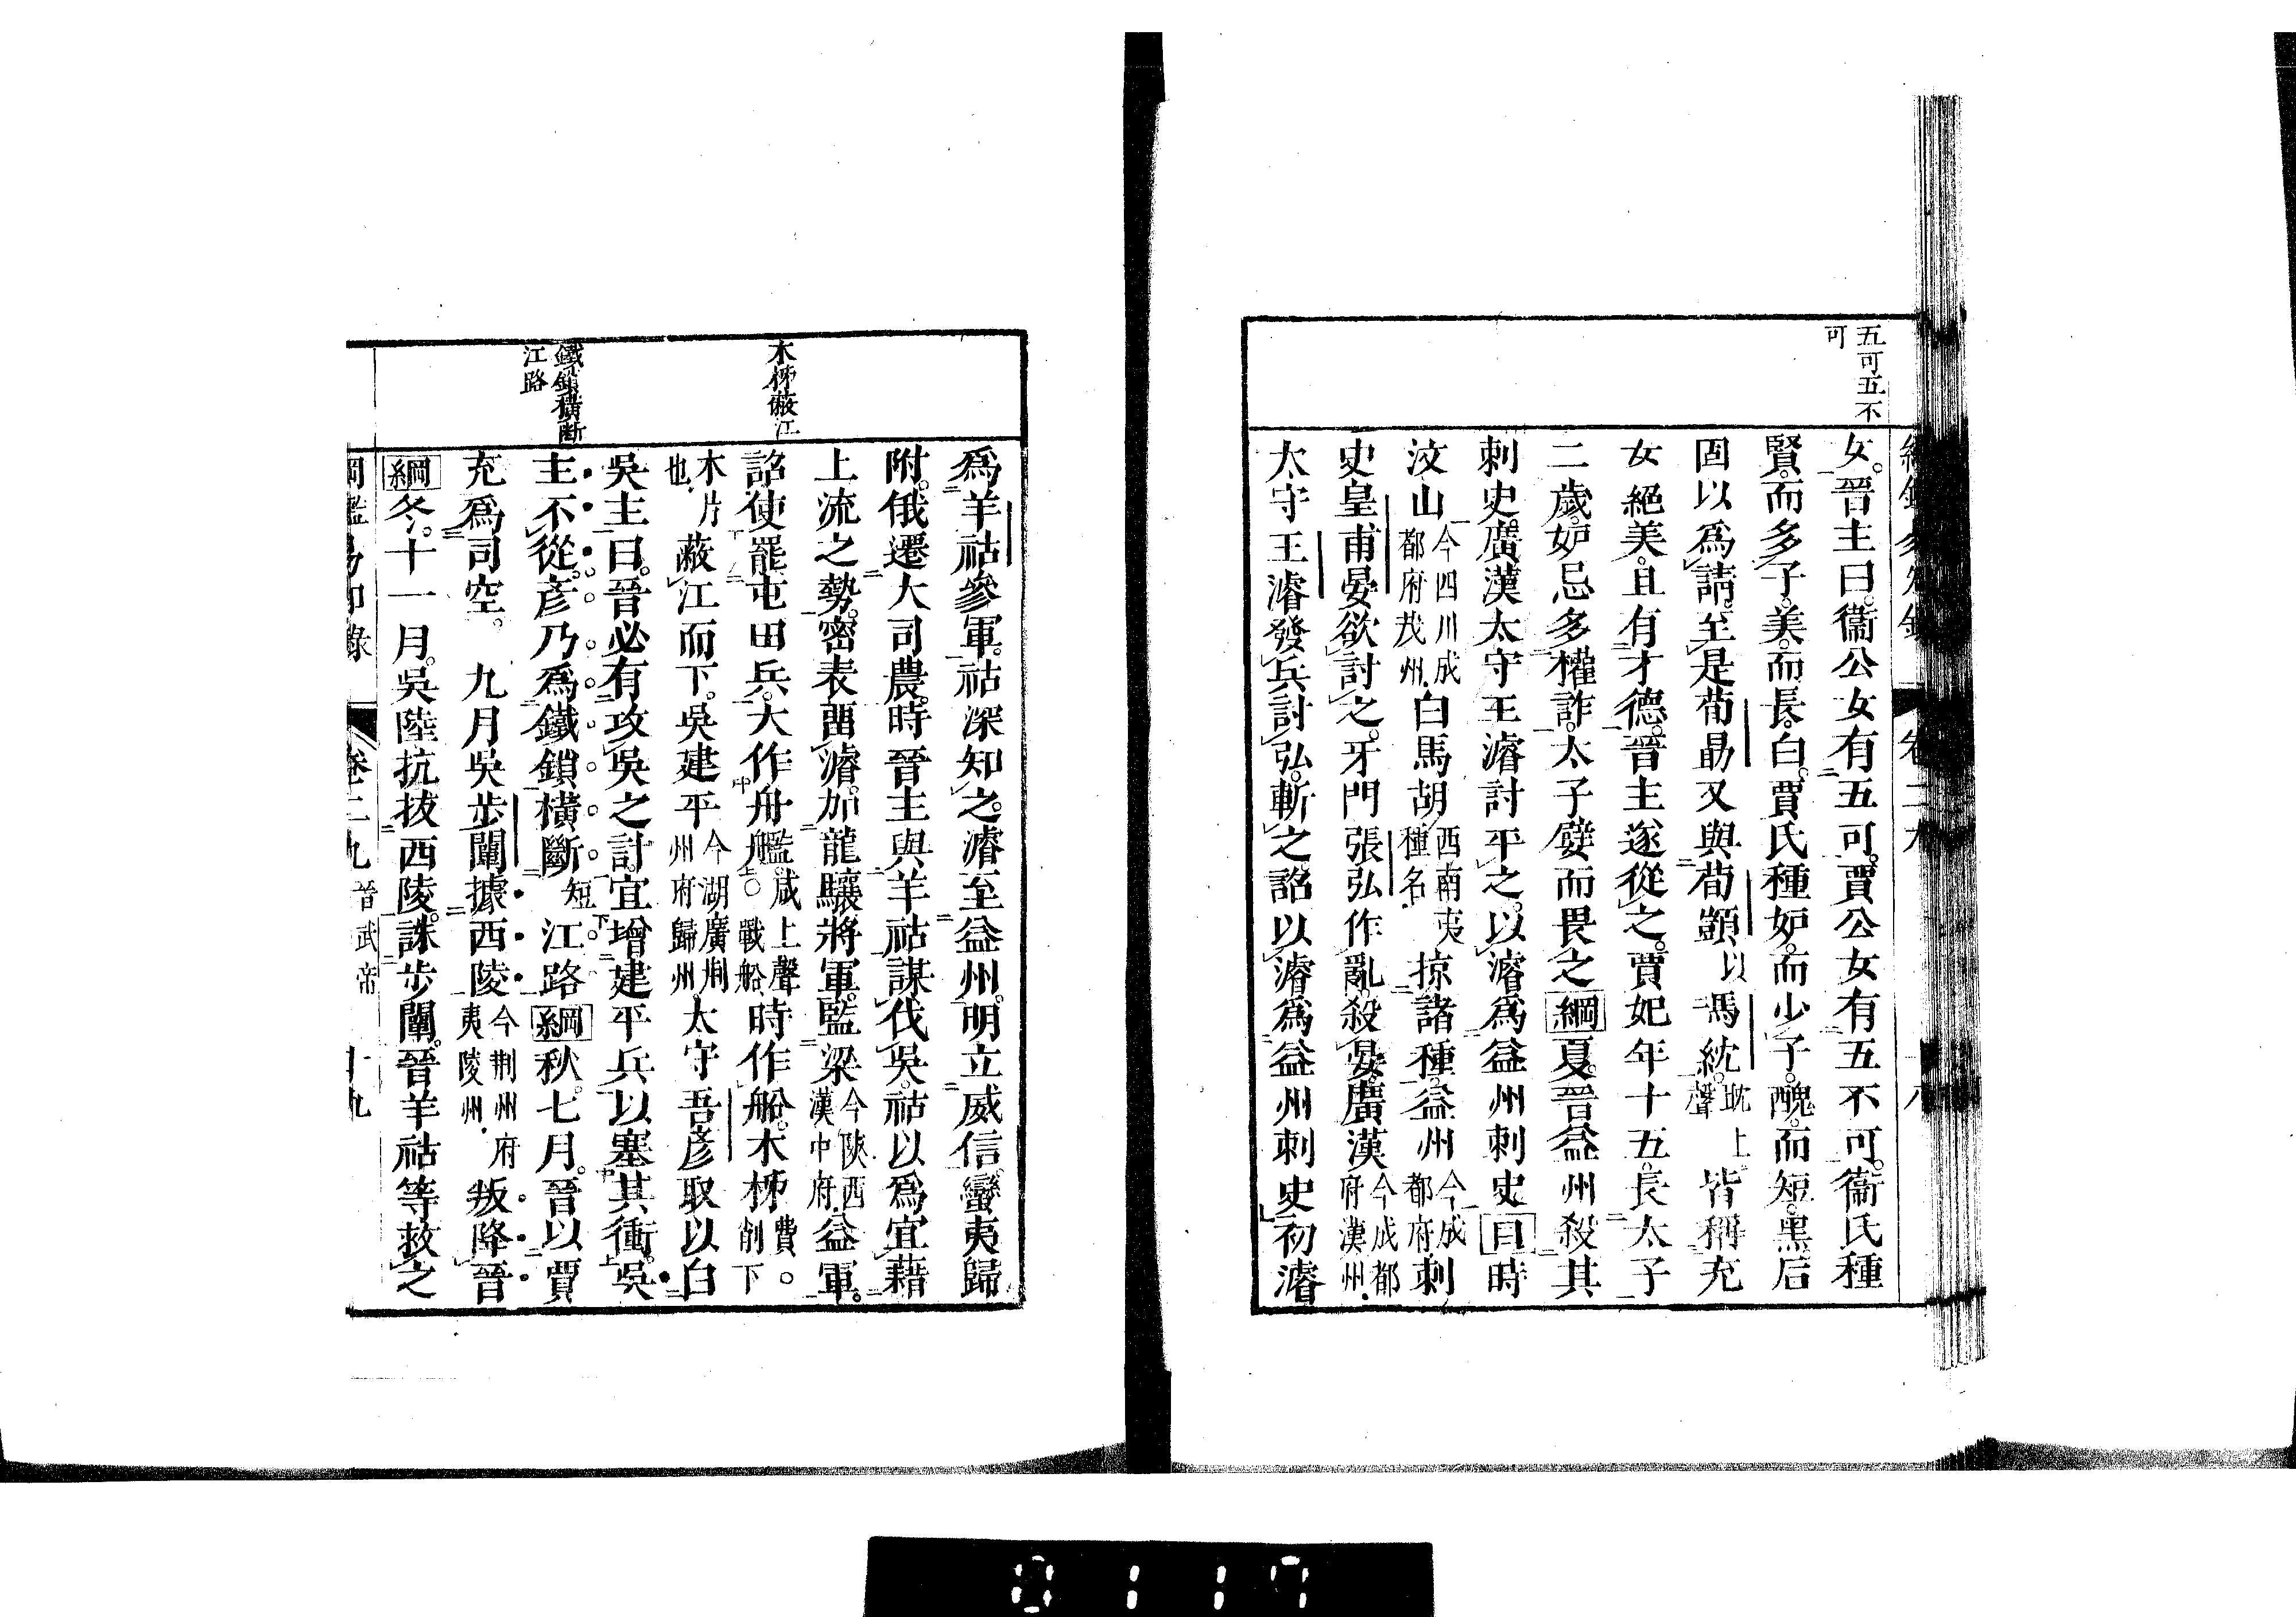 五可五不
可
女。晉主曰。衞公女有五可。賈公女有五不可。衞氏種
賢。而多子。美。而長。白。賈氏種妒。而少子。醜。而短。黑。后
固以爲請。至是荀勗又與荀顗以馮紞。耽上聲皆稱充
女絕美。且有才德。晉主遂從之。賈妃年十五。長太子
二歲。妒忌多權詐。太子嬖而畏之綱夏。晉益州殺其
刺史。廣漢太守王濬討平之。以濬爲益州刺史目時
汶山今四川成都府茂州.白馬胡西南夷種名.掠諸種。益州今成都府.刺
史皇甫晏欲討之。牙門張弘作亂。殺晏。廣漢今成都府漢州.
太守王濬發兵討弘。斬之詔以濬爲益州刺史初濬
木柹蔽江
鐵鎖橫斷
江路
爲羊祜參軍。祜深知之。濬至益州。明立威信。蠻夷歸
附。俄遷大司農。時晉主與羊祜謀伐吳。祜以爲宜藉
上流之勢。密表畱濬。加龍驤將軍。監梁今陝西漢中府.益軍。
詔使罷屯田兵。大作舟艦。咸上聲○戰船.時作船。木柹費○削下
木片也.蔽江而下。吳建平今湖廣荆州府歸州.太守吾彥取以白
吳主曰。晉必有攻吳之計。宜增建平兵以塞其衝。吳
主不從。彥乃爲鐵鎖橫斷短江路綱秋。七月。晉以賈
充爲司空。 九月吳步闡據西陵今荆州府夷陵州.叛降晉
綱冬。十一月。吳陸抗拔西陵。誅步闡。晉羊祜等救之
綱鑑易知錄 卷二九 晉武帝 十九
0117